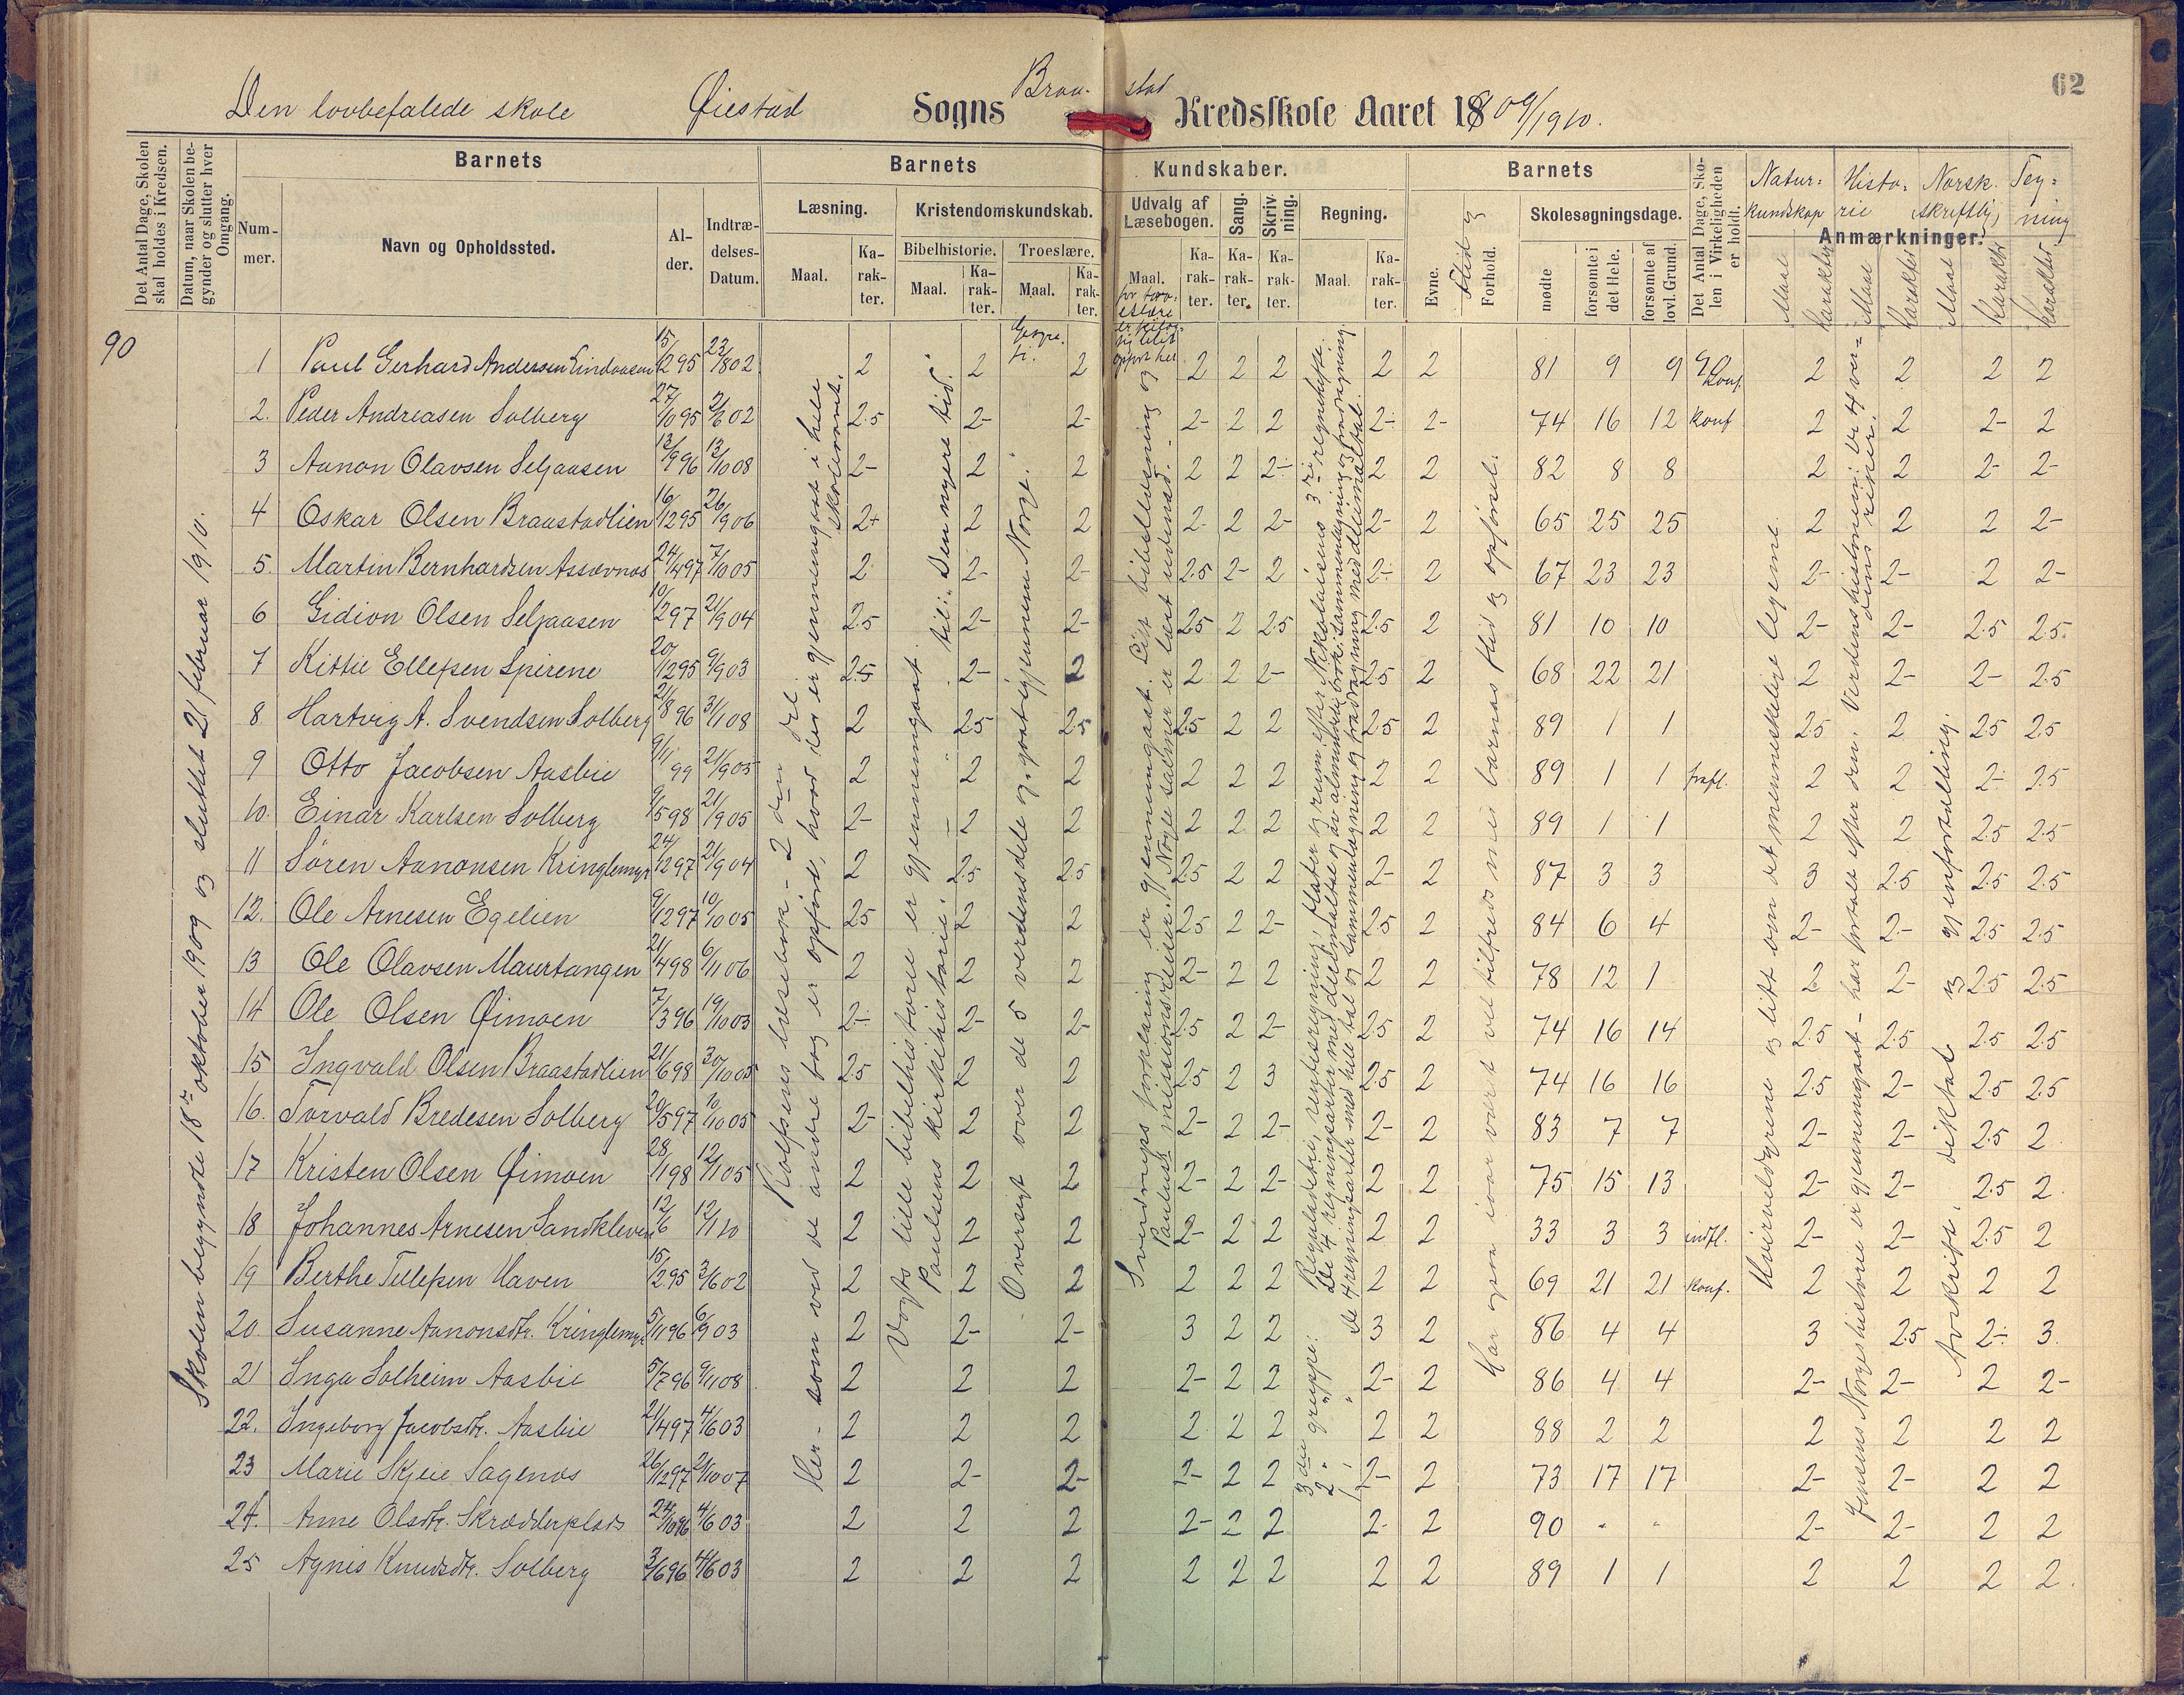 62
Den lovbefalede skole Øiestad Sogns Braa- stad Kredsskole Aaret 18 09/1910.
Det Antal Dage, Skolen skal holdes i Kredsen.
Datum, naar Skolen begynder og slutter hver Omgang.
Barnets
Barnets
Kundskaber.
Barnets
Det Antal Dage, Skolen i Virkeligheden er holdt.
Natur: Histo: Norsk. Teg=
kundskap rie skriftlig ning
Anmærkninger.
Nummer. Navn og Opholdssted. Alder. Indtrædelses-Datum.
Læsning. Kristendomskundskab. Udvalg af Læsebogen. Sang. Skrivning. Regning. Evne. Flid og Forhold. Skolesøgningsdage.
Bibelhistorie. Troeslære.
Maal. Karakter. Maal. Karakter. Maal. Karakter. Maal. Karakter. Karakter. Karakter. Maal. Karakter. mødte forsømte i det Hele. forsømte af lovl. Grund. Maal Karakter Maal Karakter Maal Karakter Karakter
90
Skolen begyndte 18de oktober 1909 og sluttet 21 februar 1910.
Rolfsens læsebok - 2den del.
Her - som ved de andre fag er opført, hvad der er gjennemgaat i hele skoleaaret.
Vogts lille bibelhistorie er gjennemgaat til: Den nyere tid.
Paulsens kirkehistorie.
Oversigt over de 5 verdensdele og godt igjennem Norge.
Sverdrups forklaring er gjennemgaat. Litt bibellæsning og
Paulus' missionsreiser. Nogle salmer er lært udenad.
3die gruppe: Reguladetri, rentesregning, flater og rum efter Nikolaisens 3die regnehefte.
2 " " De 4 regningsarter med hele tal og sammenlægning og fradragning med decimaltal.
Har gjen iaar været vel tilfreds med barnas flid og opførsel.
Hvirveldyrene og litt om det menneskelige legeme
Jensens Norges historie er gjennemgaat - har fortalt efter den. Verdenshistorien:
Avskrift, diktat og gjenfortelling.
1 Paul Gerhard Andersen Lindaasen 15/12 95 23/8 02 2 2 2 2 2 2 2 2 81 9 9 90 konf. 2 2 2 2
2. Peder Andreasen Solberg 27/10 95 2/6 02 2.5 2- 2- 2- 2 2 2- 2- 74 16 12 konf 2 2 2- 2
3 Aanon Olavsen Seljaasen 13/9 96 13/10 08 2- 2 2 2 2 2- 2 2 82 8 8 2 2 2- 2-
4 Oskar Olsen Braastadlien 16/12 95 26/9 06 2+ 2 2 2- 2 2- 2- 2 65 25 25 2 2 2 2-
5. Martin Bernhardsen Assævnos 24/4 97 7/10 05 2 2- 2- 2.5 2- 2 2- 2 67 23 23 2- 2- 2 2-
6 Gidion Olsen Seljaasen 10/2 97 21/9 04 2.5 2- 2- 2.5 2 2.5 2.5 2 81 10 10 2- 2- 2.5 2.5
7 Kittil Ellefsen Spirene 20/12 95 9/9 03 2.5 2- 2 2 2 2- 2.5 2 68 22 21 2 2- 2- 2.5
8 Hartvig A. Svendsen Solberg 21/8 96 31/1 08 2 2.5 2.5 2.5 2 2 2.5 2 89 1 1 2.5 2 2.5 2.5
9 Otto Jacobsen Aasbie 9/11 99 21/9 05 2 2 2 2 2 2 2 2 89 1 1 frafl. 2 2 2- 2.5
10. Einar Karlsen Solberg 9/5 98 21/9 05 2- 2 2 2 2 2 2 2 89 1 1 2 2 2.5 2.5
11 Søren Aanonsen Kringlemyr 24/12 97 21/9 04 2 2.5 2.5 2.5 2 2 2- 2 87 3 3 3 2.5 2.5 2.5
12. Ole Arnesen Egelien 9/12 97 10/10 05 2.5 2 2 2.5 2 2- 2.5 2 84 6 4 2- 2- 2.5 2.5
13 Ole Olavsen Maurtangen 21/4 98 6/11 06 2 2 2 2- 2 2 2 2 78 12 1 2 2- 2.5 2.5
14 Ole Olsen Øimoen 7/3 96 19/10 03 2- 2- 2- 2.5 2 2- 2.5 2 74 16 14 2.5 2.5 2.5 2.5
15 Ingvald Olsen Braastadlien 21/6 98 30/10 05 2.5 2 2 2.5 2 3 2.5 2 74 16 16 2.5 2- 2.5 2.5
16. Torvald Bredesen Solberg 20/5 97 10/10 05 2- 2 2 2- 2 2- 2- 2 83 7 7 2- 2- 2.5 2
17 Kristen Olsen Øimoen 28/1 98 12/1 05 2 2 2 2- 2 2- 2 2 75 15 13 2- 2- 2.5 2
18 Johannes Arnesen Sandkleven 12/6 12/1 10 2 2 2 2- 2 2 2 2 33 3 3 indfl. 2- 2- 2.5 2
19 Berthe Tellefsen Haven 15/2 95 3/6 02 2 2 2 2 2 2 2 2 69 21 21 konf. 2 2 2 2
20. Susanne Aanonsdtr. Kringlemyr 5/11 96 6/9 03 2 2- 2- 3 2 2 3 2 86 4 4 3 2.5 2- 3
21 Inga Solheim Aasbie 5/7 96 9/1 08 2 2 2 2- 2 2 2- 2 86 4 4 2- 2- 2 2-
22. Ingeborg Jacobsdtr. Aasbie 21/4 97 4/6 03 2 2 2 2 2 2 2 2 88 2 2 2 2 2 2
23 Marie Skjeie Sagenes 26/12 97 21/10 07 2 2- 2- 2- 2 2 2- 2 73 17 17 2- 2- 2 2
24. Anne Olsdtr. Skrædderplads 24/10 96 4/6 03 2 2 2 2- 2 2 2- 2 90 - - 2- 2- 2 2
25 Agnis Knudsdtr. Solberg 3/6 96 4/6 03 2 2 2 2 2 2 2 2 89 1 1 2 2 2 2